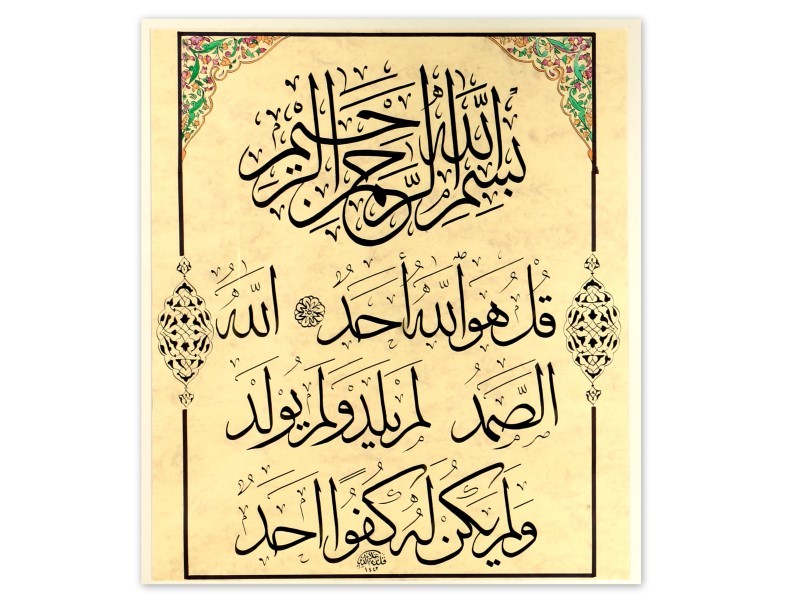 بِسْمِ اللَّهِ الرَّحْمَنِ الرَّحِيمِ
قُلْ هُوَ اللَّهُ أَحَدٌ اللَّهُ
الصَّمَدُ لَمْ يَلِدْ وَلَمْ يُولَدْ
وَلَمْ يَكُنْ لَهُ كُفُوًا احَدٌ